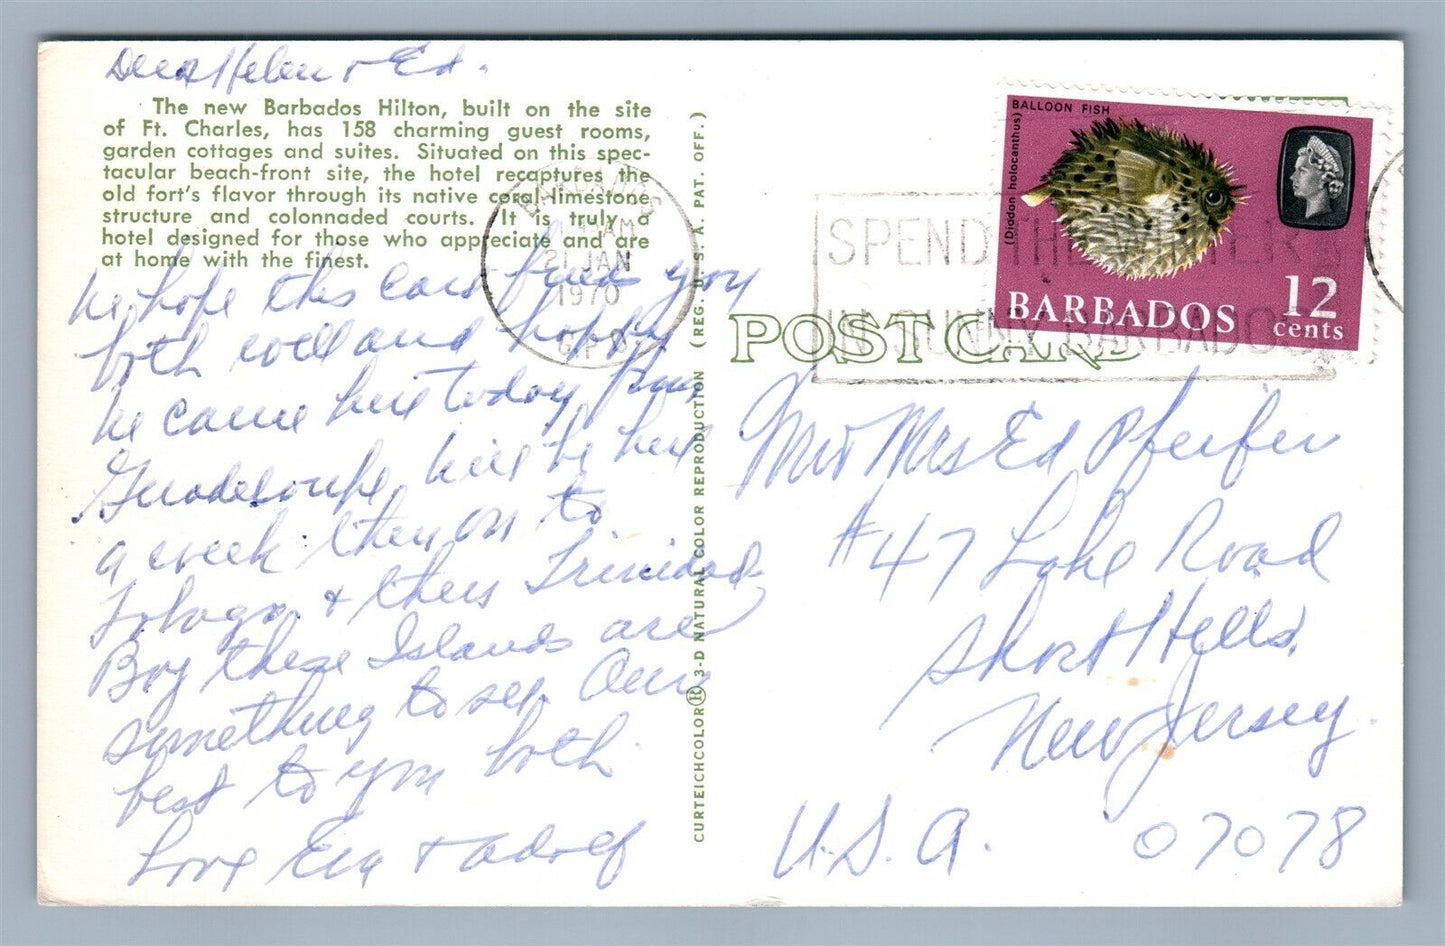 Dear Helen & Ed.
The new Barbados Hilton, built on the site
of Ft. Charles, has 158 charming guest rooms,
garden cottages and suites. Situated on this spec-
tacular beach-front site, the hotel recaptures the
old fort's flavor through its native coral-limestone
structure and colonnaded courts. It is truly a
hotel designed for those who appreciate and are
at home with the finest.
We hope this card finds you
both well and happy
We came here today from
Guadeloupe, will be here
a week then on to
Tobago & then Trinidad
Boy these Islands are
something to see. Our
best to you both
Love Eva & Adolf
CURTEICHCOLOR® 3-D NATURAL COLOR REPRODUCTION (REG. U. S. A. PAT. OFF.)
BARBADOS
AM
21 JAN
1970
G.P.O.
POST CARD
SPEND THE WINTER
IN SUNNY BARBADOS
BALLOON FISH
(Diodon holocanthus)
BARBADOS
12
cents
Mr & Mrs Ed Pfeifer
#47 Lake Road
Short Hills,
New Jersey.
U.S.A. 07078